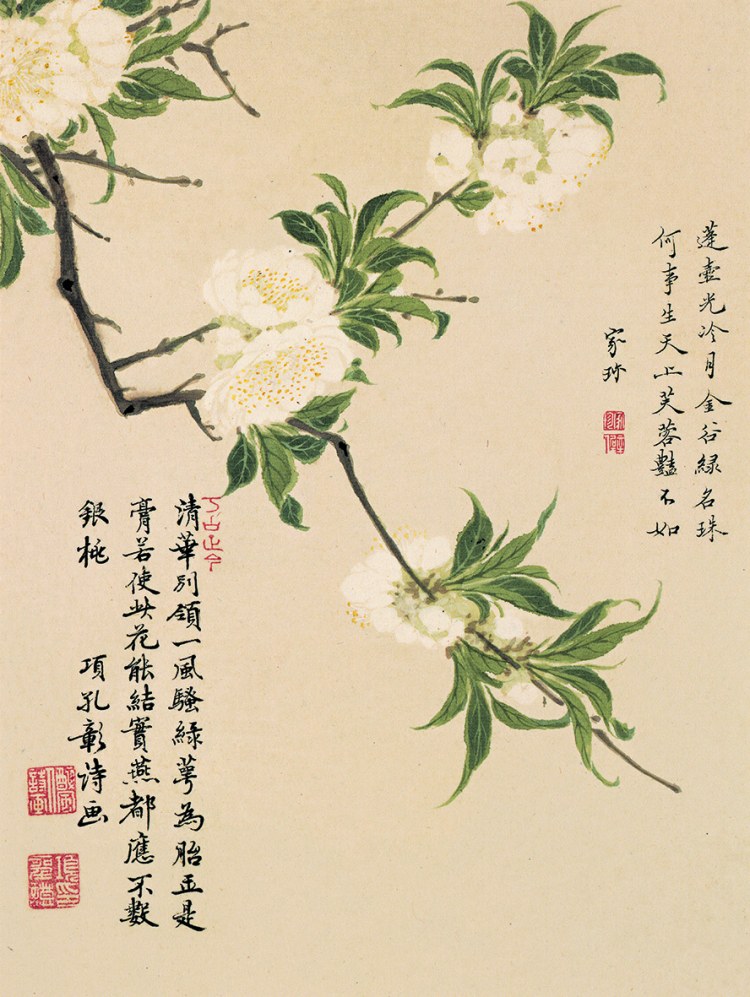 蓬壺光冷月金谷緑名珠
何事生天上芙蓉豔不如
家珎
清華別領一風騷緑萼為胎玉是
膏若使此花能結實燕都應不數
銀桃 項孔彰詩画